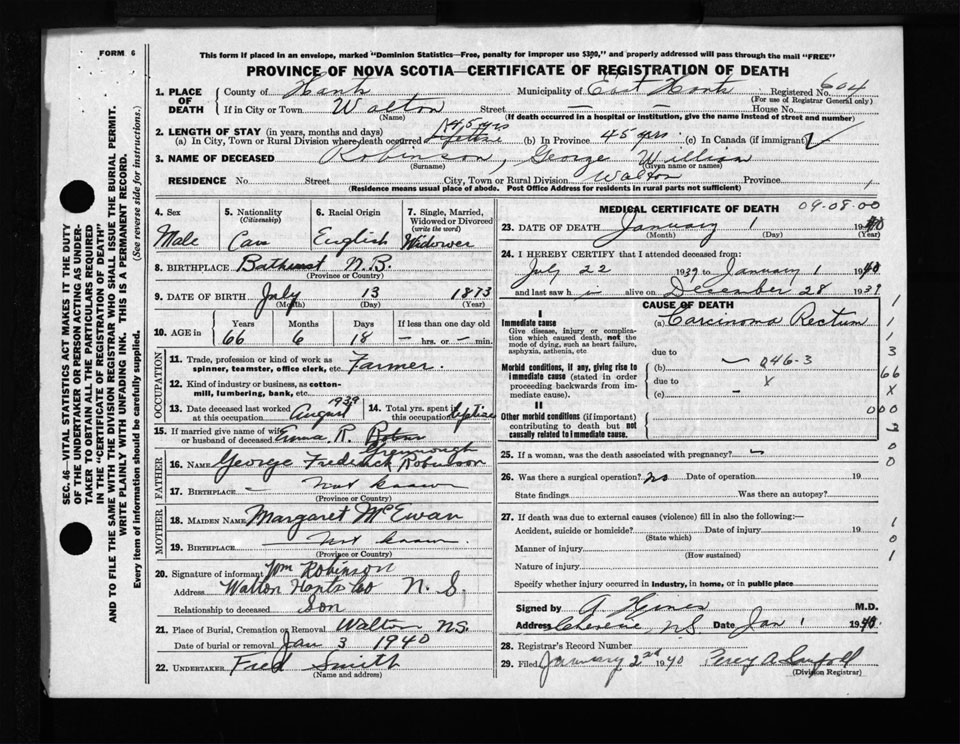 FORM 6
This form if placed in an envelope, marked "Dominion Statistics—Free, penalty for improper use $300," and properly addressed will pass through the mail "FREE"
PROVINCE OF NOVA SCOTIA—CERTIFICATE OF REGISTRATION OF DEATH
1. PLACE OF DEATH
County of Hants Municipality of East Hants Registered No. 604
(For use of Registrar General only)
If in City or Town Walton Street — — House No.
(Name) (If death occurred in a hospital or institution, give the name instead of street and number)
2. LENGTH OF STAY (in years, months and days)
(a) In City, Town or Rural Division where death occurred 45 yrs (b) In Province 45 yrs. (c) In Canada (if immigrant)
3. NAME OF DECEASED Robinson, George William
(Surname) (Given name or names)
RESIDENCE No. Street City, Town or Rural Division Walton Province
(Residence means usual place of abode. Post Office Address for residents in rural parts not sufficient)
4. Sex
Male
5. Nationality
(Citizenship)
Can
6. Racial Origin
English
7. Single, Married, Widowed or Divorced
(write the word)
Widower
8. BIRTHPLACE Bathurst N.B.
(Province or Country)
9. DATE OF BIRTH July 13 1873
(Month) (Day) (Year)
10. AGE in
Years Months Days If less than one day old
66 6 18 — hrs. or — min.
OCCUPATION
11. Trade, profession or kind of work as spinner, teamster, office clerk, etc. Farmer.
12. Kind of industry or business, as cotton-mill, lumbering, bank, etc.
13. Date deceased last worked at this occupation August 1939
14. Total yrs. spent in this occupation
15. If married give name of wife or husband of deceased Emma R.
FATHER
16. NAME George Frederick Robinson
17. BIRTHPLACE — Not known
(Province or Country)
MOTHER
18. MAIDEN NAME Margaret McEwan
19. BIRTHPLACE Not known.
(Province or Country)
20. Signature of informant Wm Robinson
Address Walton Hants Co N.S.
Relationship to deceased Son
21. Place of Burial, Cremation or Removal Walton NS.
Date of burial or removal Jan 3 1940
22. UNDERTAKER Fred Smith
(Name and address)
MEDICAL CERTIFICATE OF DEATH 09-08-00
23. DATE OF DEATH January 1 1940
(Month) (Day) (Year)
24. I HEREBY CERTIFY that I attended deceased from:
July 22 1939 to January 1 1940
and last saw h im alive on December 28 1939
CAUSE OF DEATH
I
Immediate cause
Give disease, injury or complication which caused death, not the mode of dying, such as heart failure, asphyxia, asthenia, etc
(a) Carcinoma Rectum
due to
Morbid conditions, if any, giving rise to immediate cause (stated in order proceeding backwards from immediate cause).
(b) — 046-3
due to X
(c) —
II
Other morbid conditions (if important) contributing to death but not causally related to immediate cause.
1
1
3
66
X
000
2
0
0
25. If a woman, was the death associated with pregnancy?
26. Was there a surgical operation? No Date of operation 19
State findings Was there an autopsy?
27. If death was due to external causes (violence) fill in also the following:—
Accident, suicide or homicide? Date of injury 19
(State which)
Manner of injury
(How sustained)
Nature of injury
Specify whether injury occurred in industry, in home, or in public place
1
0
1
Signed by M.D.
Address Cheverie, N.S. Date Jan 1 1940
28. Registrar's Record Number
29. Filed January 2nd 1940 Percy A.
(Division Registrar)
SEC. 46—VITAL STATISTICS ACT MAKES IT THE DUTY
OF THE UNDERTAKER OR PERSON ACTING AS UNDER-
TAKER TO OBTAIN ALL THE PARTICULARS REQUIRED
IN THE "CERTIFICATE OF REGISTRATION OF DEATH"
AND TO FILE THE SAME WITH THE DIVISION REGISTRAR WHO SHALL ISSUE THE BURIAL PERMIT.
WRITE PLAINLY WITH UNFADING INK. THIS IS A PERMANENT RECORD.
Every item of information should be carefully supplied. (See reverse side for instructions.)